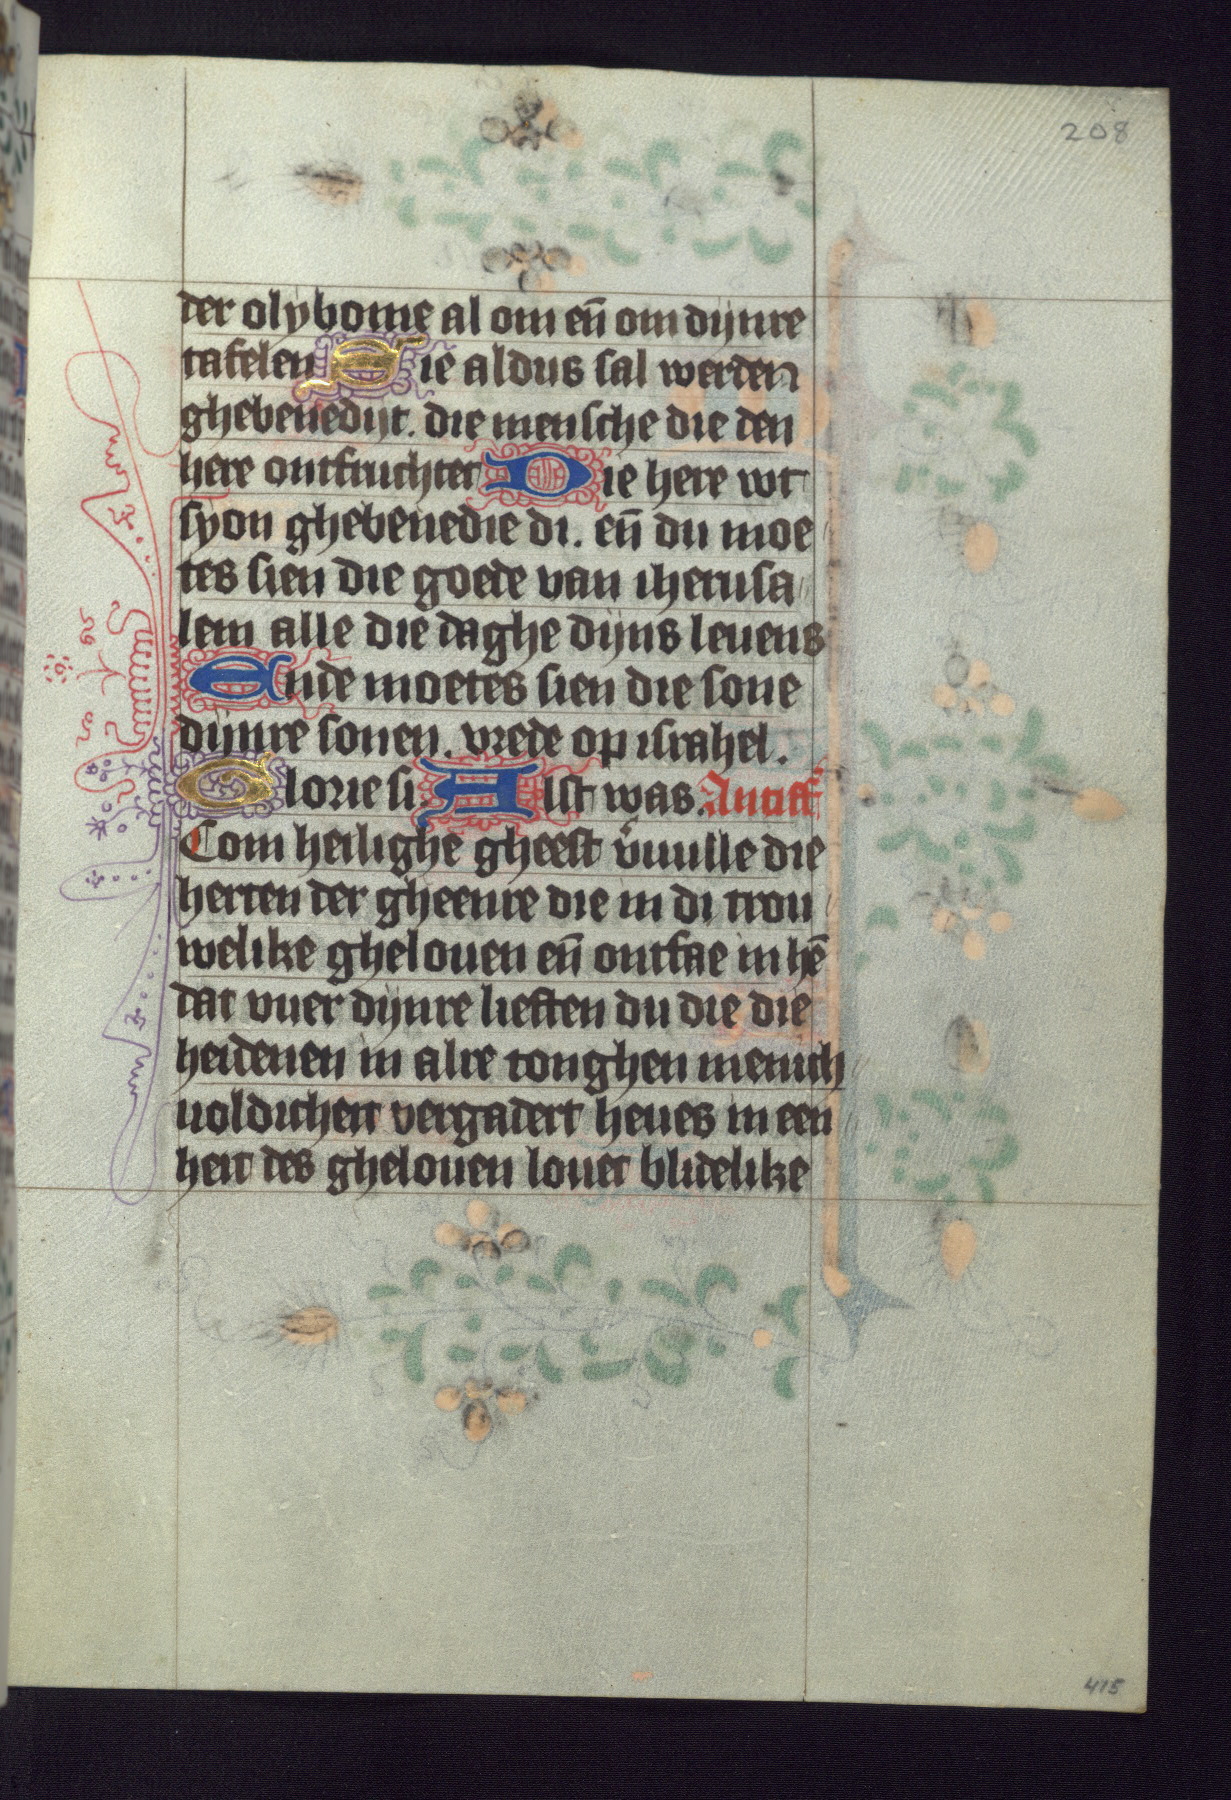 208
der olybome al om en̄ om dijnre
tafelen Sie aldus sal werden
ghebenedijt. die mensche die den
here ontfruchtet Die here wt
syon ghebenedie di. en̄ du moe
tes sien die goede van iherusa
lem alle die daghe dijns leuens
Ende moetes sien die sone
dijnre sonen. vrede op israhel.
Glorie si. Alst was. Antiff
Com heilighe gheest v̄uulle die
herten der gheenre die in di trou
welike ghelouen en̄ ontfae in hē
dat vuer dijnre lieften du die die
heidenen in alre tonghen menich
uoldicheit vergadert heues in een
heit des ghelouen louet blidelike
415